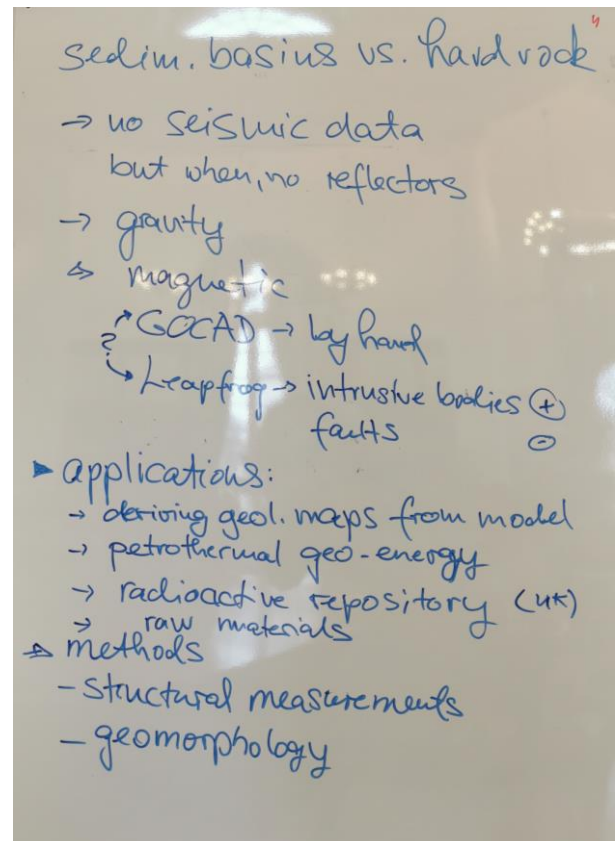 4
sedim. basins vs. hard rock
→ no seismic data
but when, no reflectors
→ gravity
→ magnetic
? GOCAD → by hand
Leapfrog → intrusive bodies +
faults -
▶ applications:
→ deriving geol. maps from model
→ petrothermal geo-energy
→ radioactive repository (UK)
→ raw materials
▶ methods
- structural measurements
- geomorphology